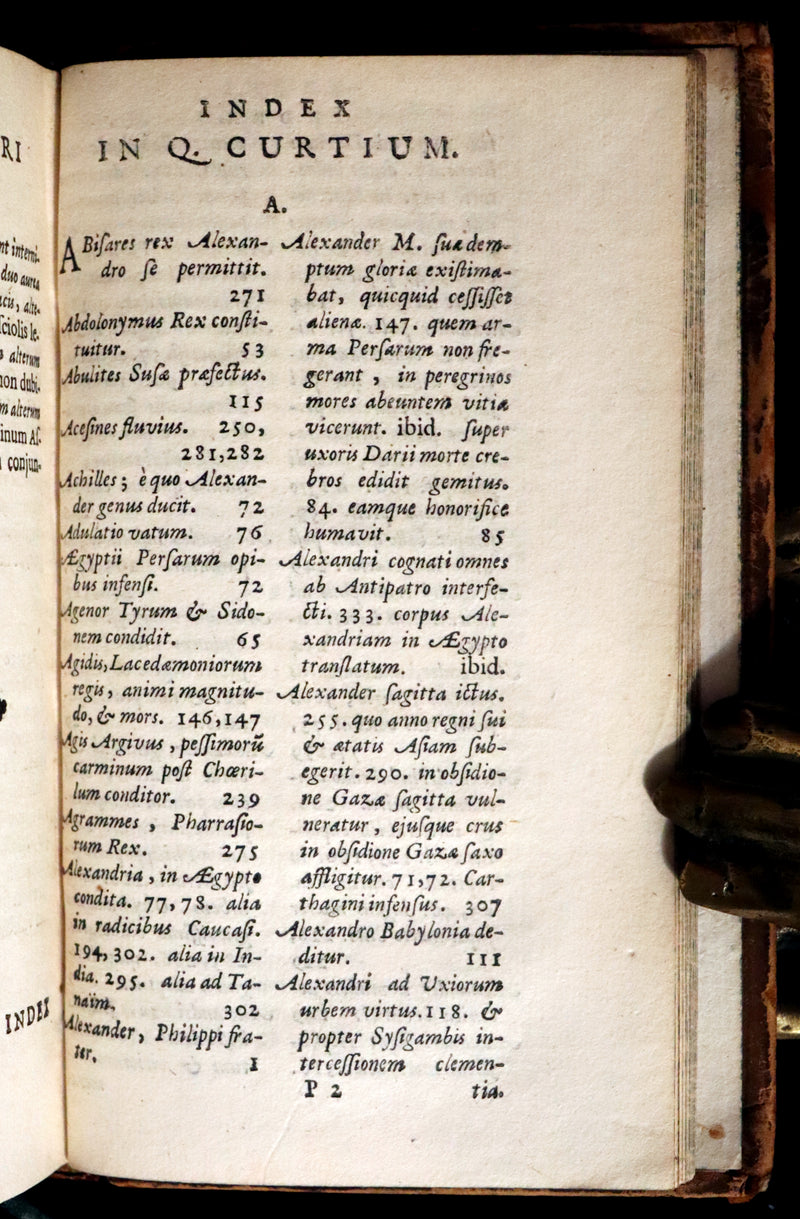 RI
nt interni.
duo aurea
ciolis le.
alterum
non dubi.
m alterum
inum As.
conjun-
INDEX
INDEX
IN Q. CURTIUM.
A.
ABiſares rex Alexan-
dro ſe permittit.
271
Abdolonymus Rex conſti-
tuitur. 53
Abulites Suſæ præfectus.
115
Aceſines fluvius. 250,
281,282
Achilles; è quo Alexan-
der genus ducit. 72
Adulatio vatum. 76
Ægyptii Perſarum opi-
bus infenſi. 72
Agenor Tyrum & Sido-
nem condidit. 65
Agidis, Lacedæmoniorum
regis, animi magnitu-
do, & mors. 146,147
Agis Argivus, peſſimorũ
carminum poſt Chœri-
lum conditor. 239
Agrammes, Pharraſio-
rum Rex. 275
Alexandria, in Ægypto
condita. 77,78. alia
in radicibus Caucaſi.
194, 302. alia in In-
dia. 295. alia ad Ta-
naim. 302
Alexander, Philippi fra-
ter. 1
Alexander M. ſuæ dem-
ptum gloriæ exiſtima-
bat, quicquid ceſſiſſet
alienæ. 147. quem ar-
ma Perſarum non fre-
gerant, in peregrinos
mores abeuntem vitia
vicerunt. ibid. ſuper
uxoris Darii morte cre-
bros edidit gemitus.
84. eamque honorifice
humavit. 85
Alexandri cognati omnes
ab Antipatro interfe-
cti. 333. corpus Ale-
xandriam in Ægypto
tranſlatum. ibid.
Alexander ſagitta ictus.
255. quo anno regni ſui
& ætatis Aſiam ſub-
egerit. 290. in obſidio-
ne Gazæ ſagitta vul-
neratur, ejuſque crus
in obſidione Gazæ ſaxo
affligitur. 71,72. Car-
thagini infenſus. 307
Alexandro Babylonia de-
ditur. 111
Alexandri ad Uxiorum
urbem virtus. 118. &
propter Syſigambis in-
terceſſionem clemen-
P 2 tia.